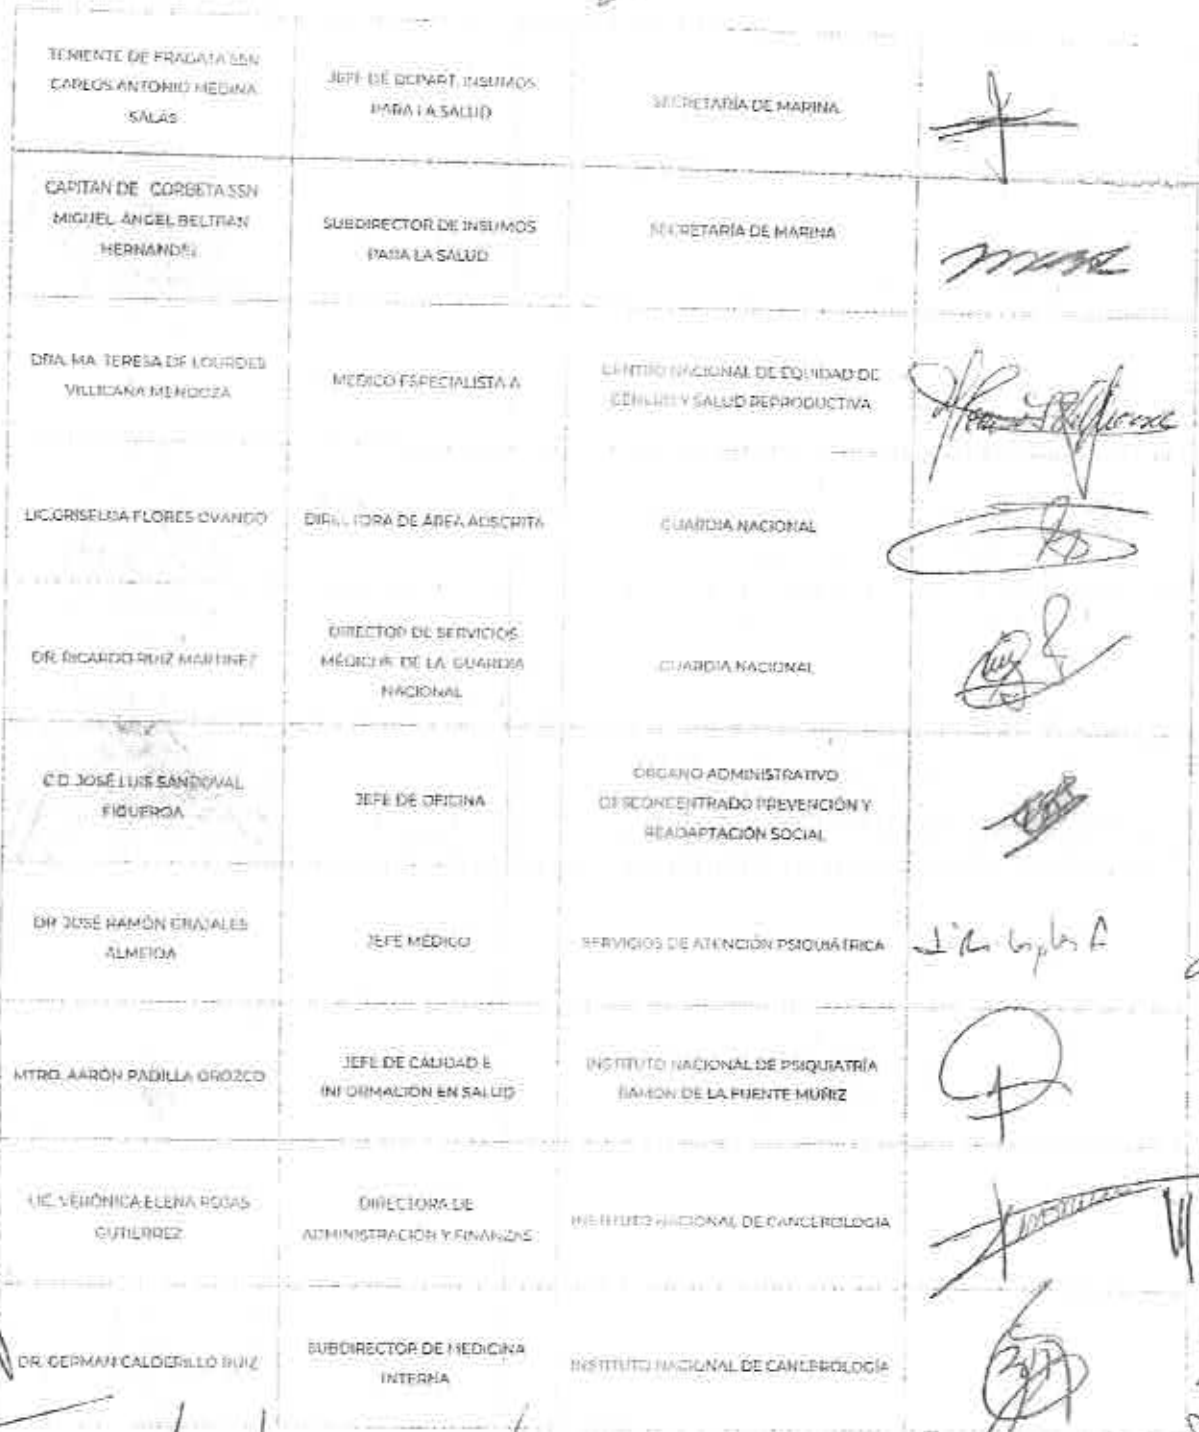 TENIENTE DE FRAGATA SSN
CARLOS ANTONIO MEDINA
SALAS
JEFE DE DEPART. INSUMOS
PARA LA SALUD
SECRETARÍA DE MARINA
CAPITAN DE CORBETA SSN
MIGUEL ÁNGEL BELTRAN
HERNANDEZ
SUBDIRECTOR DE INSUMOS
PARA LA SALUD
SECRETARÍA DE MARINA
DRA. MA. TERESA DE LOURDES
VILLICAÑA MENDOZA
MEDICO ESPECIALISTA A
CENTRO NACIONAL DE EQUIDAD DE
GENERO Y SALUD REPRODUCTIVA
LIC.GRISELDA FLORES OVANDO
DIRECTORA DE ÁREA ADSCRITA
GUARDIA NACIONAL
DR. RICARDO RUIZ MARTINEZ
DIRECTOR DE SERVICIOS
MÉDICOS DE LA GUARDIA
NACIONAL
GUARDIA NACIONAL
C.D. JOSÉ LUIS SANDOVAL
FIGUEROA
JEFE DE OFICINA
ÓRGANO ADMINISTRATIVO
DESCONCENTRADO PREVENCIÓN Y
READAPTACIÓN SOCIAL
DR JOSÉ RAMÓN GRAJALES
ALMEIDA
JEFE MÉDICO
SERVICIOS DE ATENCIÓN PSIQUIÁTRICA
MTRO. AARÓN PADILLA OROZCO
JEFE DE CALIDAD E
INFORMACIÓN EN SALUD
INSTITUTO NACIONAL DE PSIQUIATRÍA
RAMON DE LA FUENTE MUÑIZ
LIC. VERÓNICA ELENA ROJAS
GUTIERREZ
DIRECTORA DE
ADMINISTRACIÓN Y FINANZAS
INSTITUTO NACIONAL DE CANCEROLOGÍA
DR. GERMAN CALDERILLO RUIZ
SUBDIRECTOR DE MEDICINA
INTERNA
INSTITUTO NACIONAL DE CANCEROLOGÍA